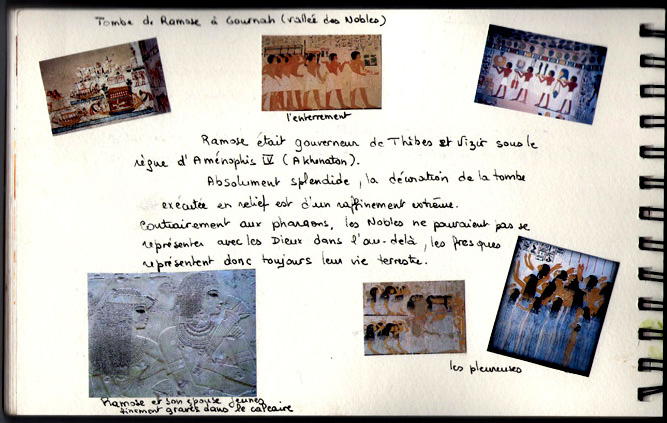 Tombe de Ramose à Gournah (vallée des Nobles)
l'enterrement
Ramose était gouverneur de Thèbes et Vizir sous le
règne d'Aménophis IV (Akhenaton).
Absolument splendide, la décoration de la tombe
exécutée en relief est d'un raffinement extrême.
Contrairement aux pharaons, les Nobles ne pouvaient pas se
représenter avec les Dieux dans l'au-delà, les fresques
représentent donc toujours leur vie terrestre.
les pleureuses
Ramose et son épouse jeunes
finement gravés dans le calcaire